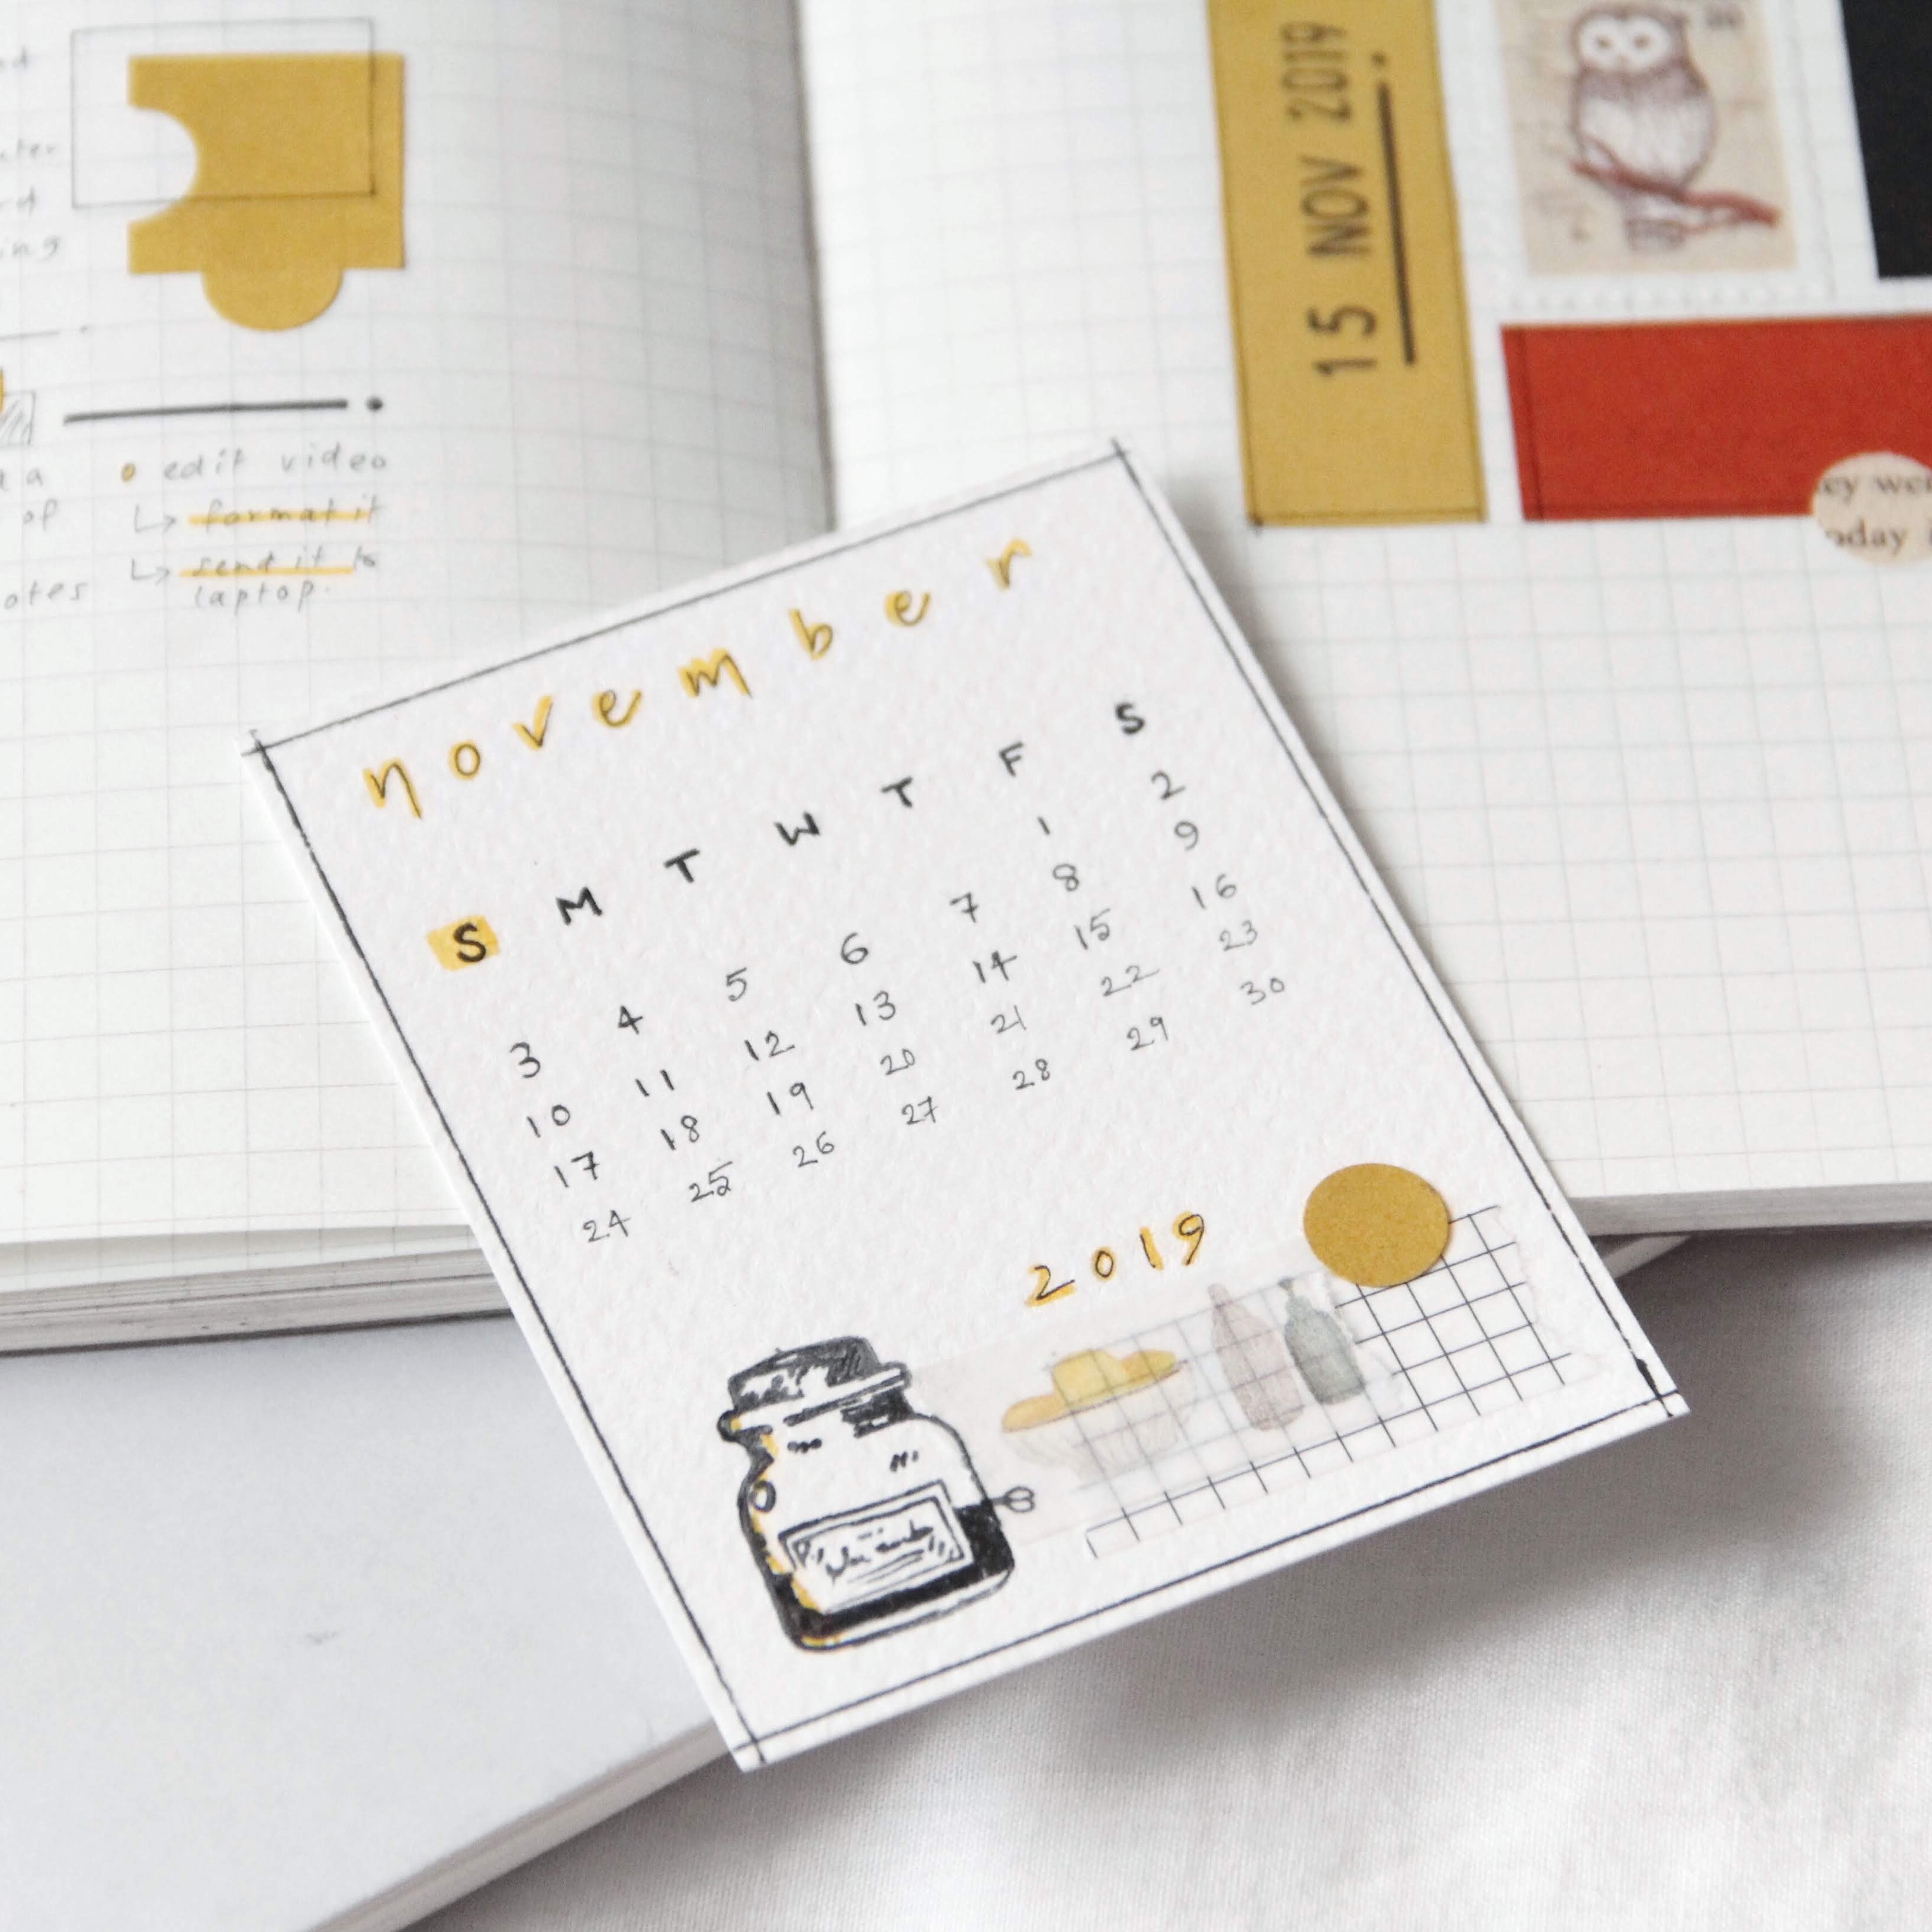 ing
a
of
otes
edit video
format it
send it to
laptop.
15 NOV 2019
ey wer
oday
november
S M T W T F S
1 2
3 4 5 6 7 8 9
10 11 12 13 14 15 16
17 18 19 20 21 22 23
24 25 26 27 28 29 30
2019